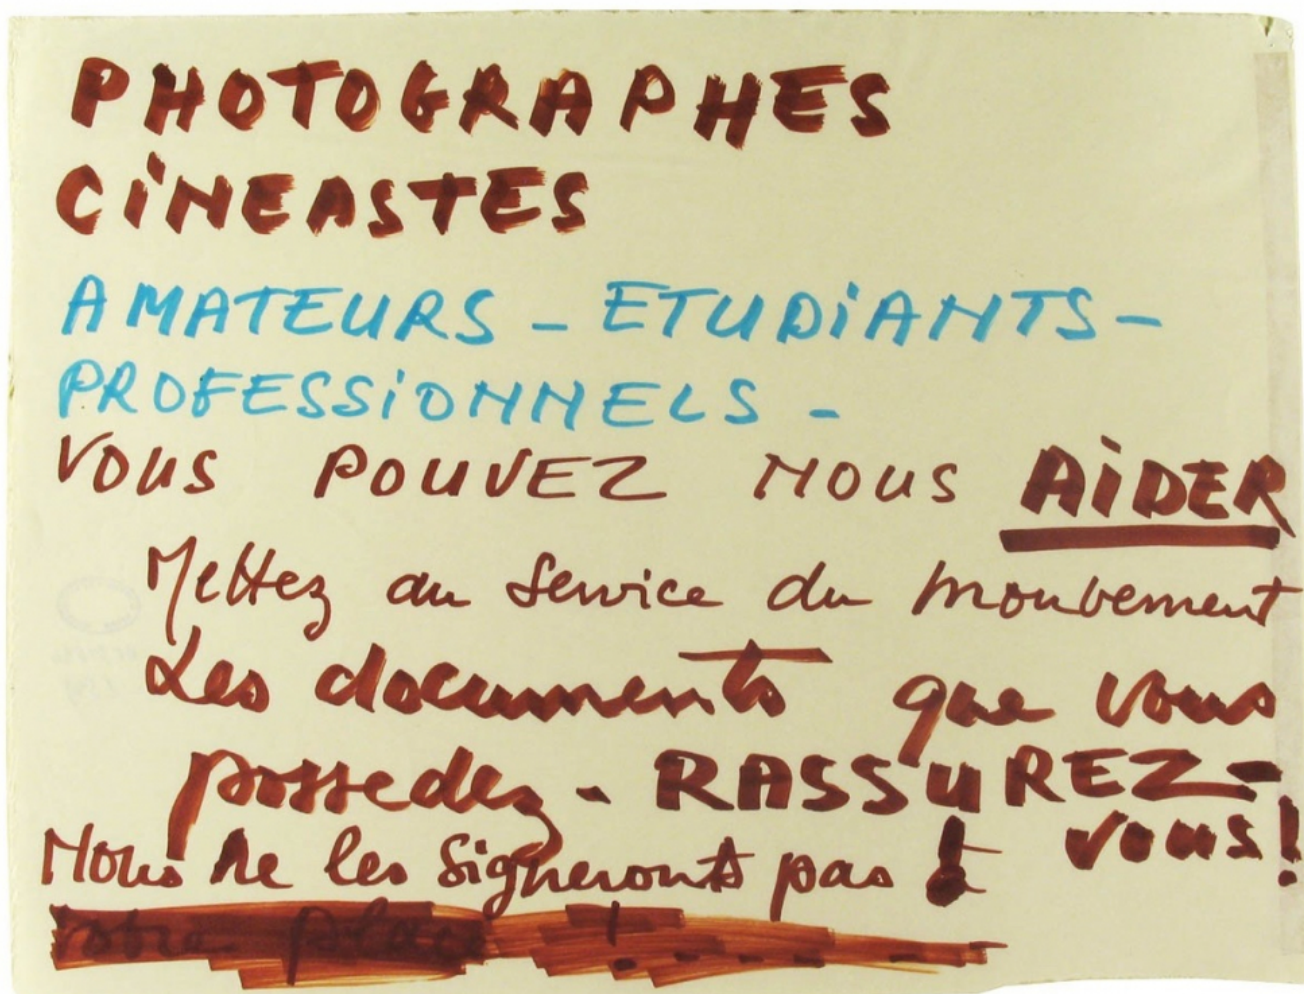 PHOTOGRAPHES
CINEASTES
AMATEURS - ETUDIANTS -
PROFESSIONNELS -
VOUS POUVEZ NOUS AIDER
Mettez au Service du mouvement
Les documents que vous
possedez - RASSUREZ-
vous!
Nous ne les signeronts pas !
votre place